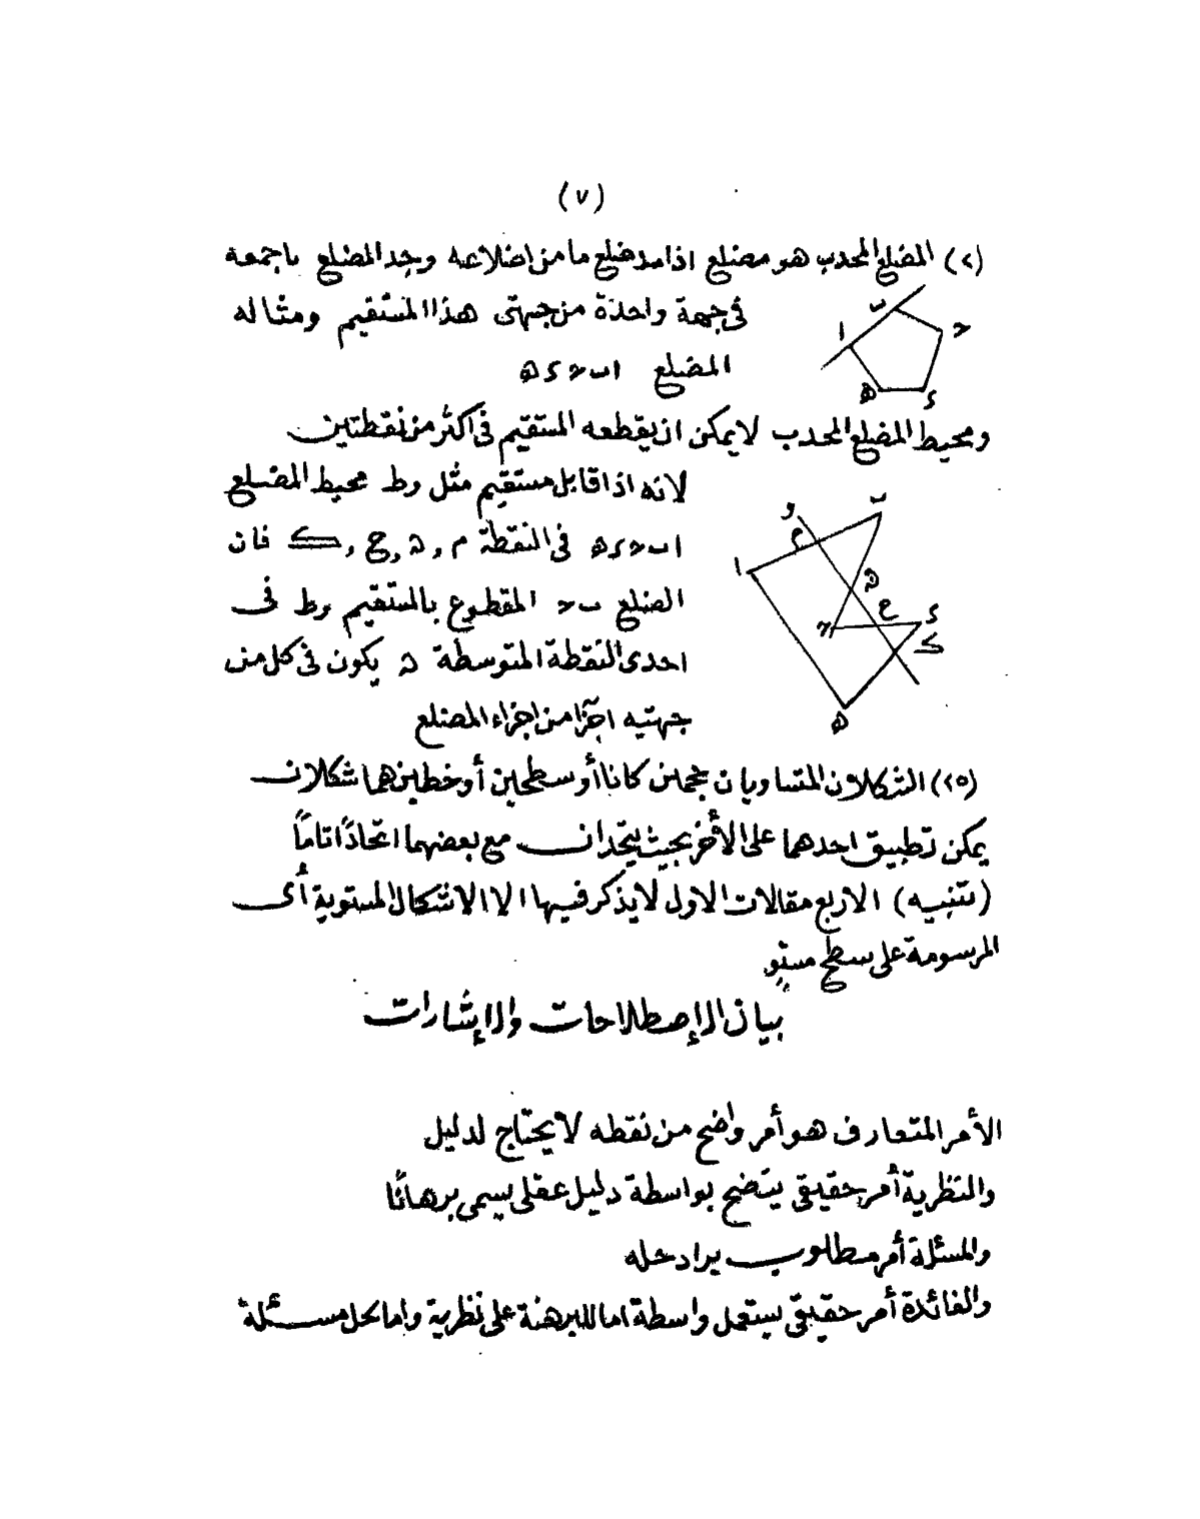 (٧)
(٢) المضلع المحدب هو مضلع اذا مد ضلع ما من اضلاعه وجد المضلع باجمعه
فى جهة واحدة من جهتى هذا المستقيم ومثاله
المضلع ا ب ح د ه
ومحيط المضلع المحدب لا يمكن ان يقطعه المستقيم فى اكثر من نقطتين
لانه اذا قابل مستقيم مثل وط محيط المضلع
ا ب ح د ه فى النقطة م , ه , ع , ك فان
الضلع ب ح المقطوع بالمستقيم وط فى
احدى النقطة المتوسطة ه يكون فى كل من
جهتيه اجزا من اجزاء المضلع
(٢٥) الشكلان المتساويان حجمين كانا أو سطحين أو خطين هما شكلان
يمكن تطبيق احدهما على الأخر بحيث يتحدان مع بعضهما اتحادًا تامًا
(تنبيه) الاربع مقالات الاول لا يذكر فيها الا الاشكال المستوية أى
المرسومة على سطح مستو
بيان الإصطلاحات والإشارات
الأمر المتعارف هو أمر واضح من نقطه لا يحتاج لدليل
والنظرية أمر حقيقى يتضح بواسطة دليل عقلى يسمى برهانًا
والمسئلة أمر مطلوب يراد حله
والفائدة أمر حقيقى يستعمل واسطة اما للبرهنة على نظرية واما لحل مسئلة